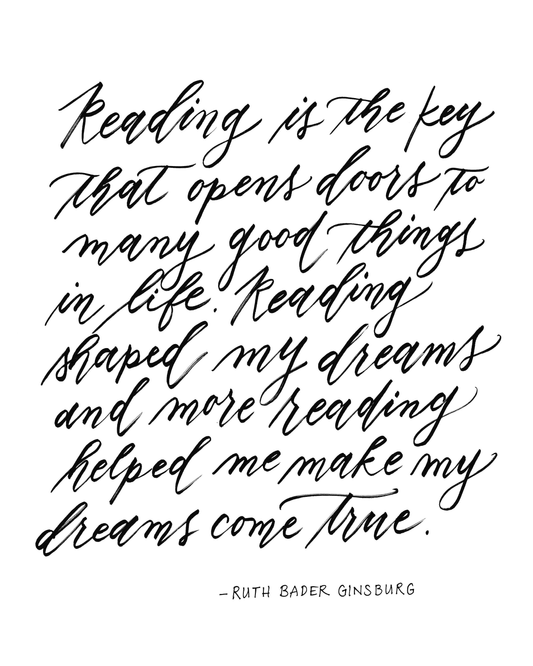 Reading is the key
that opens doors to
many good things
in life. Reading
shaped my dreams
and more reading
helped me make my
dreams come true.
-RUTH BADER GINSBURG